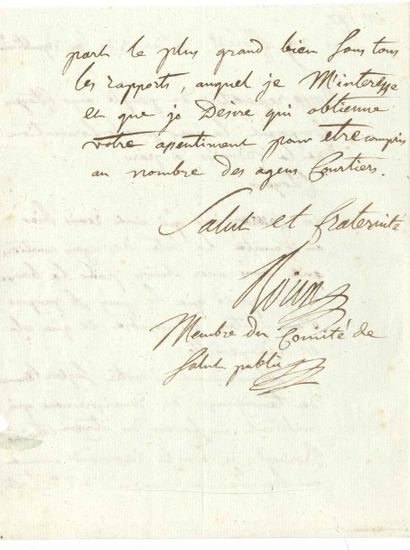 part le plus grand bien sous tous
les rapports, auquel je M'interesse
et que je Desire qui obtienne
votre asentiment pour etre compris
au nombre des agens Courtiers.
Salut et fraternité
Membre du Comité de
Salut public